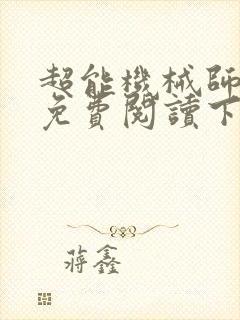 超能機械師
免費閱讀下
蔣鑫